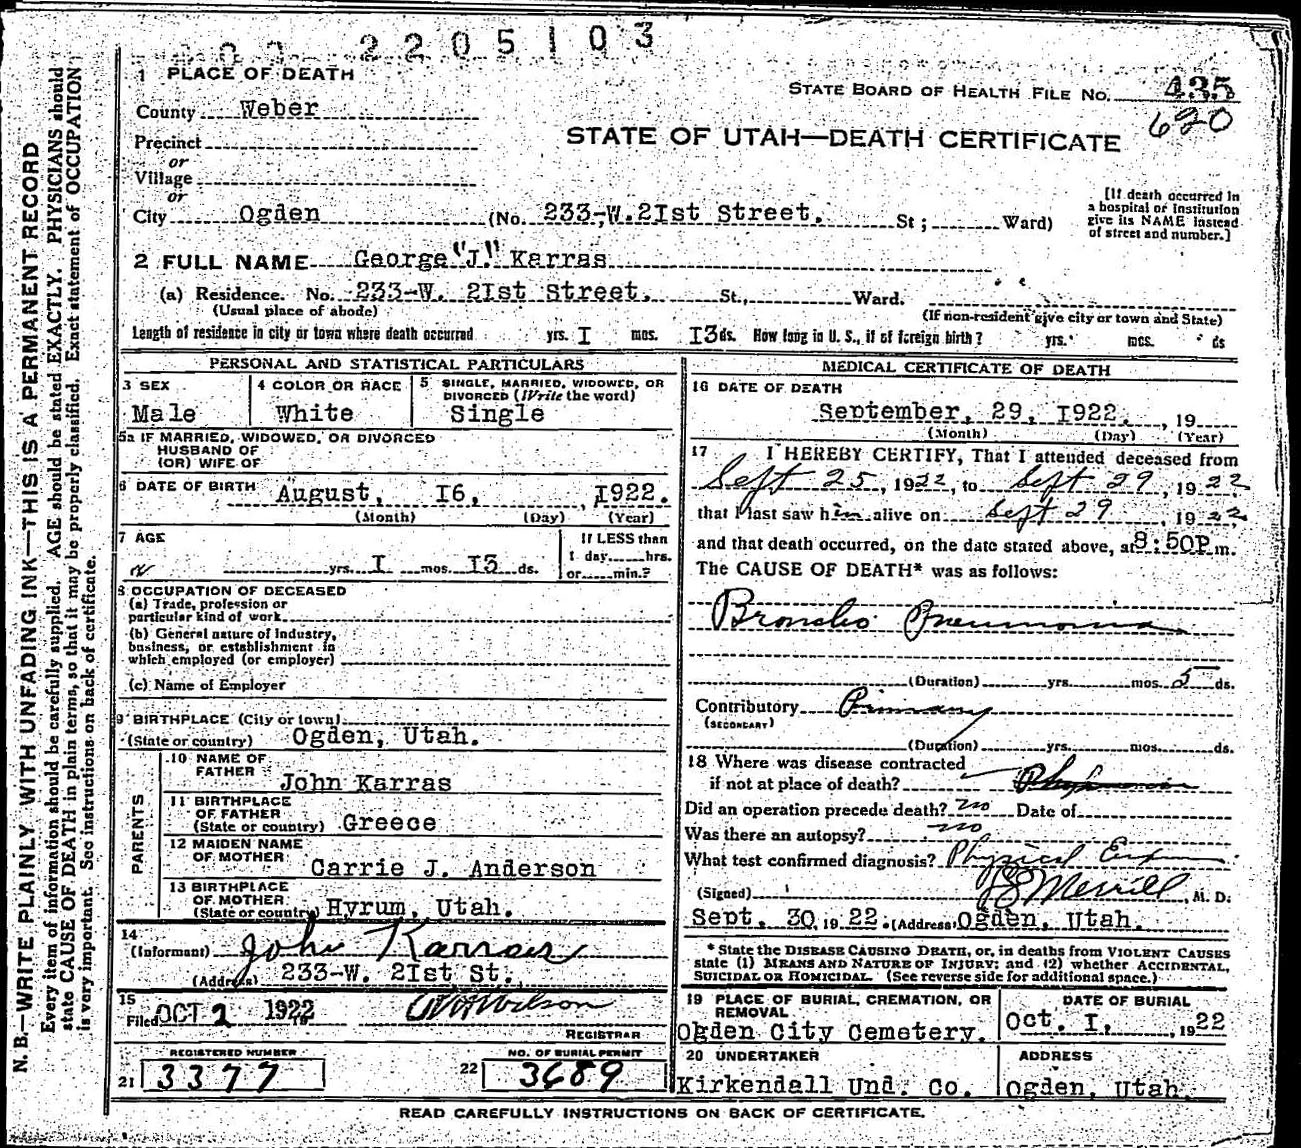 2205103
1 PLACE OF DEATH
STATE BOARD OF HEALTH FILE No. 435
County Weber
620
STATE OF UTAH—DEATH CERTIFICATE
Precinct
or
Village
or
City Ogden (No. 233-W.2Ist Street. St; Ward)
[If death occurred in
a hospital or institution
give its NAME instead
of street and number.]
2 FULL NAME George "J." Karras
(a) Residence. No. 233-W. 2Ist Street. St., Ward.
(Usual place of abode) (If non-resident give city or town and State)
Length of residence in city or town where death occurred yrs. I mos. I3 ds. How long in U. S., if of foreign birth? yrs. mos. ds
PERSONAL AND STATISTICAL PARTICULARS
3 SEX
Male
4 COLOR OR RACE
White
5 SINGLE, MARRIED, WIDOWED, OR
DIVORCED (Write the word)
Single
5a IF MARRIED, WIDOWED, OR DIVORCED
HUSBAND OF
(OR) WIFE OF
6 DATE OF BIRTH August, I6, , I922.
(Month) (Day) (Year)
7 AGE
yrs. I mos. I3 ds.
If LESS than
1 day hrs.
or min.?
8 OCCUPATION OF DECEASED
(a) Trade, profession or
particular kind of work
(b) General nature of Industry,
business, or establishment in
which employed (or employer)
(c) Name of Employer
9 BIRTHPLACE (City or town)
(State or country) Ogden, Utah.
PARENTS
10 NAME OF
FATHER John Karras
11 BIRTHPLACE
OF FATHER
(State or country) Greece
12 MAIDEN NAME
OF MOTHER Carrie J. Anderson
13 BIRTHPLACE
OF MOTHER
(State or country) Hyrum, Utah.
14
(Informant) John Karras
(Address) 233-W. 2Ist St.
15
Filed OCT 2 1922 19 W H Wilson
REGISTRAR
REGISTERED NUMBER
21 3377
NO. OF BURIAL PERMIT
22 3689
MEDICAL CERTIFICATE OF DEATH
16 DATE OF DEATH
September, 29, I922. , 19
(Month) (Day) (Year)
17 I HEREBY CERTIFY, That I attended deceased from
Sept 25, 1922, to Sept 29, 1922
that I last saw him alive on Sept 29, 1922
and that death occurred, on the date stated above, at 8:50P.m.
The CAUSE OF DEATH* was as follows:
Broncho Pneumonia
(Duration) yrs. mos. 5 ds.
Contributory Primary
(SECONDARY)
(Duration) yrs. mos. ds.
18 Where was disease contracted
if not at place of death?
Did an operation precede death? no Date of
Was there an autopsy? no
What test confirmed diagnosis? Physical Exam
(Signed) Merrill, M. D.
Sept. 30, 19 22. (Address) Ogden, Utah.
* State the DISEASE CAUSING DEATH, or, in deaths from VIOLENT CAUSES
state (1) MEANS AND NATURE OF INJURY; and (2) whether ACCIDENTAL,
SUICIDAL OR HOMICIDAL. (See reverse side for additional space.)
19 PLACE OF BURIAL, CREMATION, OR
REMOVAL
Ogden City Cemetery.
DATE OF BURIAL
Oct. I, 1922
20 UNDERTAKER
Kirkendall Und. Co.
ADDRESS
Ogden, Utah.
READ CAREFULLY INSTRUCTIONS ON BACK OF CERTIFICATE.
N. B.—WRITE PLAINLY WITH UNFADING INK—THIS IS A PERMANENT RECORD
Every item of information should be carefully supplied. AGE should be stated EXACTLY. PHYSICIANS should
state CAUSE OF DEATH in plain terms, so that it may be properly classified. Exact statement of OCCUPATION
is very important. See instructions on back of certificate.